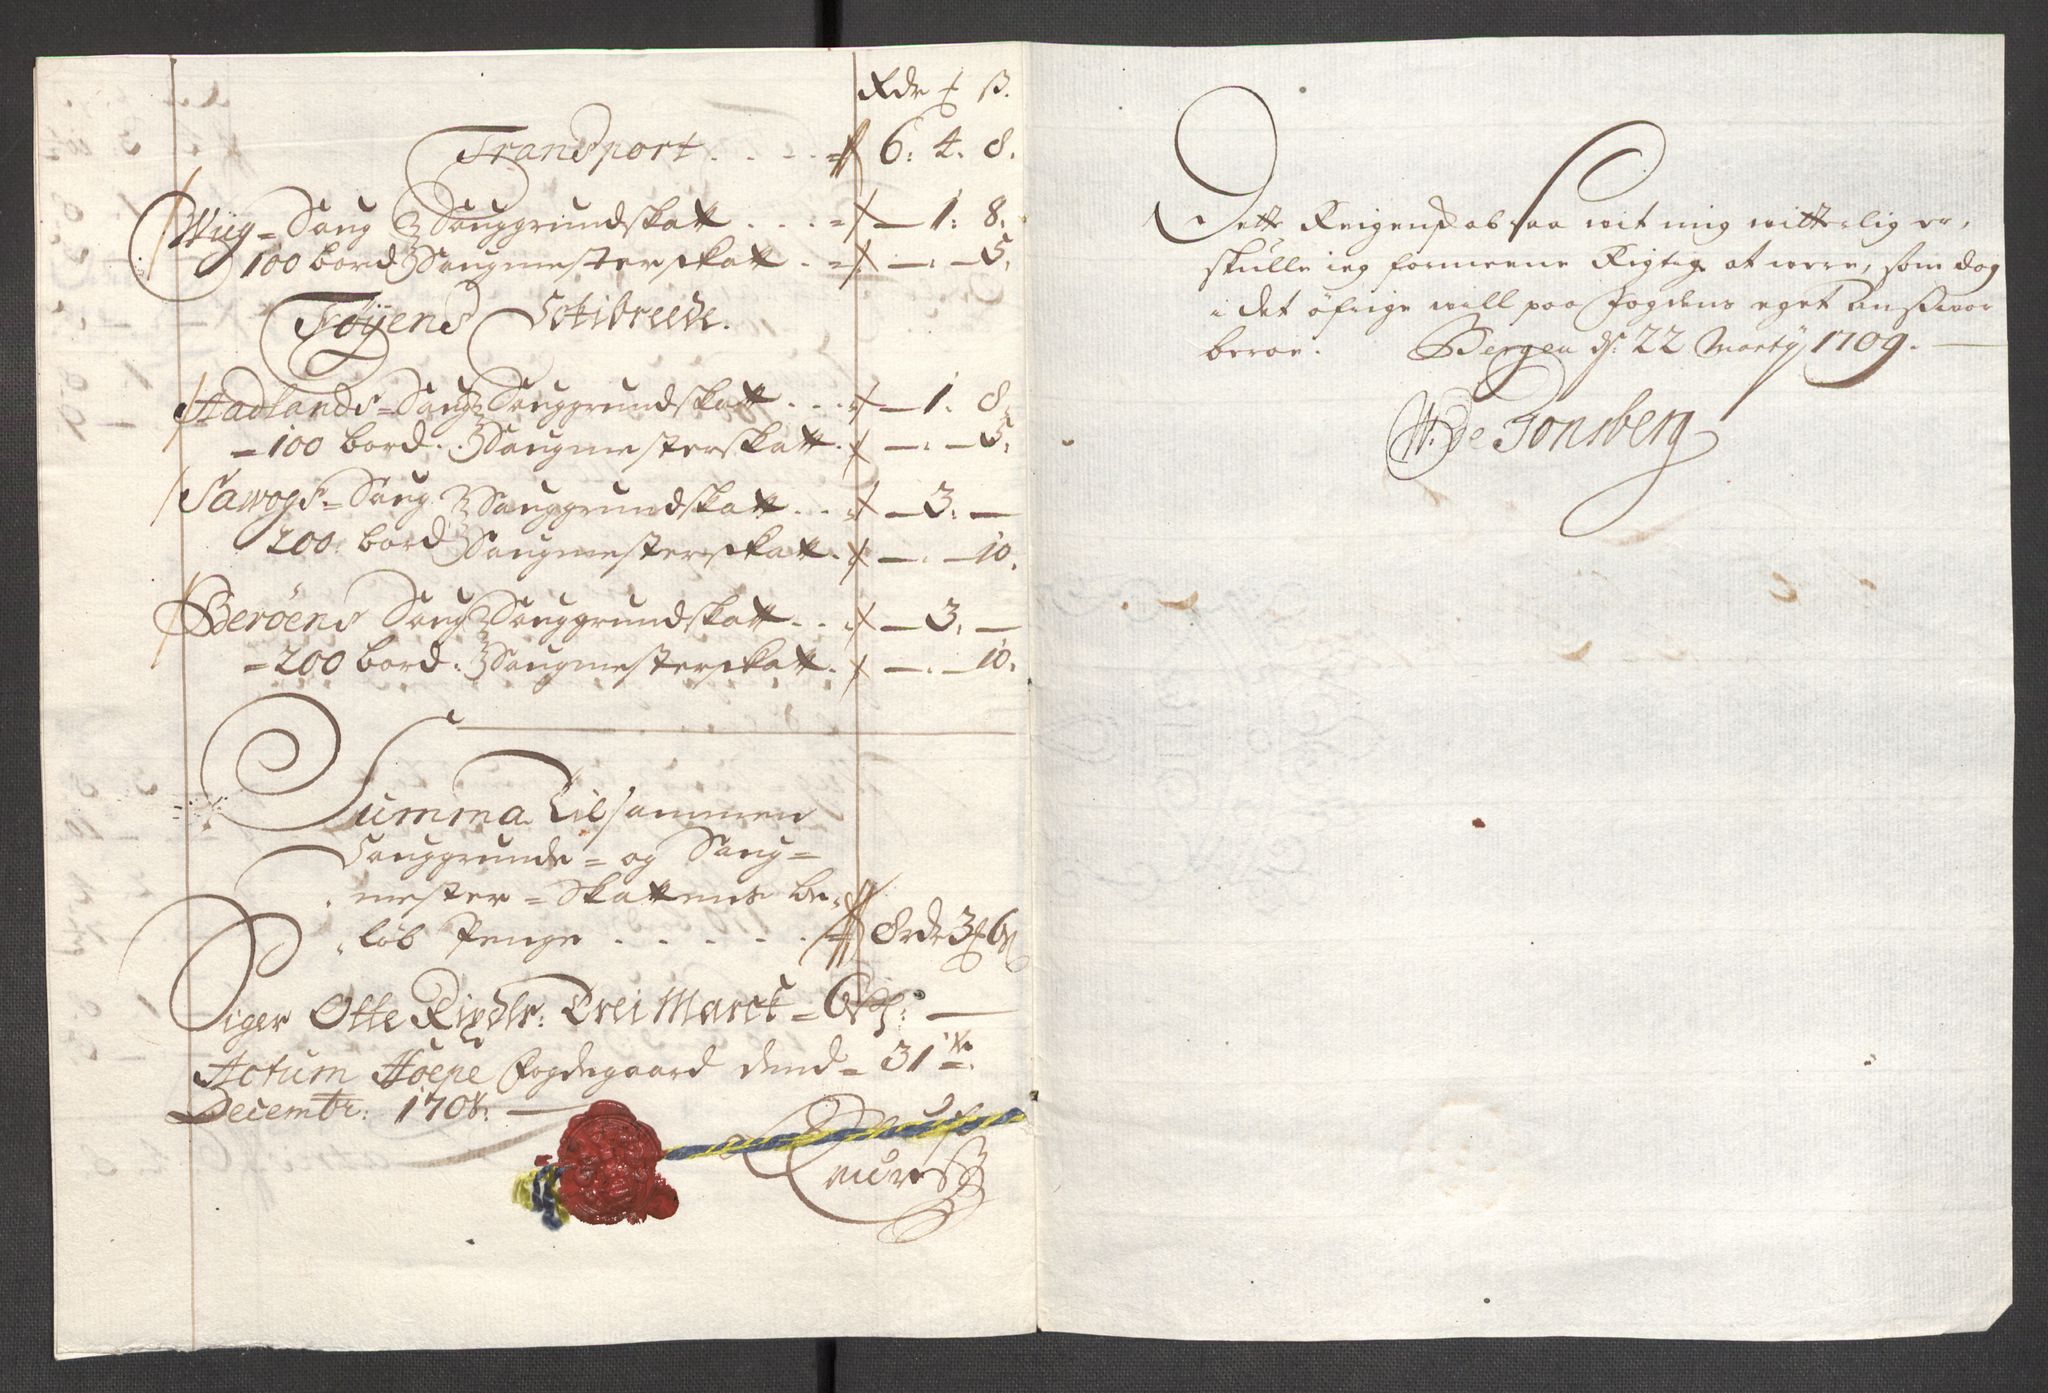 Rdr ₰ ß.
Transport . . . . 6: 4. 8.
Wiig = Saug Sauggrundskatt . . . — 1: 8:
100 bord Saugmesterskatt . — . — 5.
Föÿens Schibrede.
Hadlands = Saug Sauggrundskatt . . . — 1. 8.
= 100 bord. Saugmesterskatt. — . — 5.
Sauggrundskatt . . . — 3. —
200 bord Saugmesterskatt. — . — 10.
Beröens Saug Sauggrundskatt . . . — 3. —
= 200 bord. Saugmesterskatt. — . — 10.
Summa Tilsammen
Sauggrunde = og Saug =
mester = Skattens be,
löb Penge . . . . . 8 rdr 3 ₰ 6 ß
Siger Otte Rixdlr: Trei Marck = 6 ß: —
Actum Hoepe Fogdegaard dend = 31te.
Decembr: 1708. —
Dette Reigenskab saa wit mig witterlig er,
skulle ieg formeene Rigtig at were, som dog
i det öfrige will paa fogdens eget ansvar
beroe. Bergen d: 22 Martÿ 1709. —
W. de Tonsberg